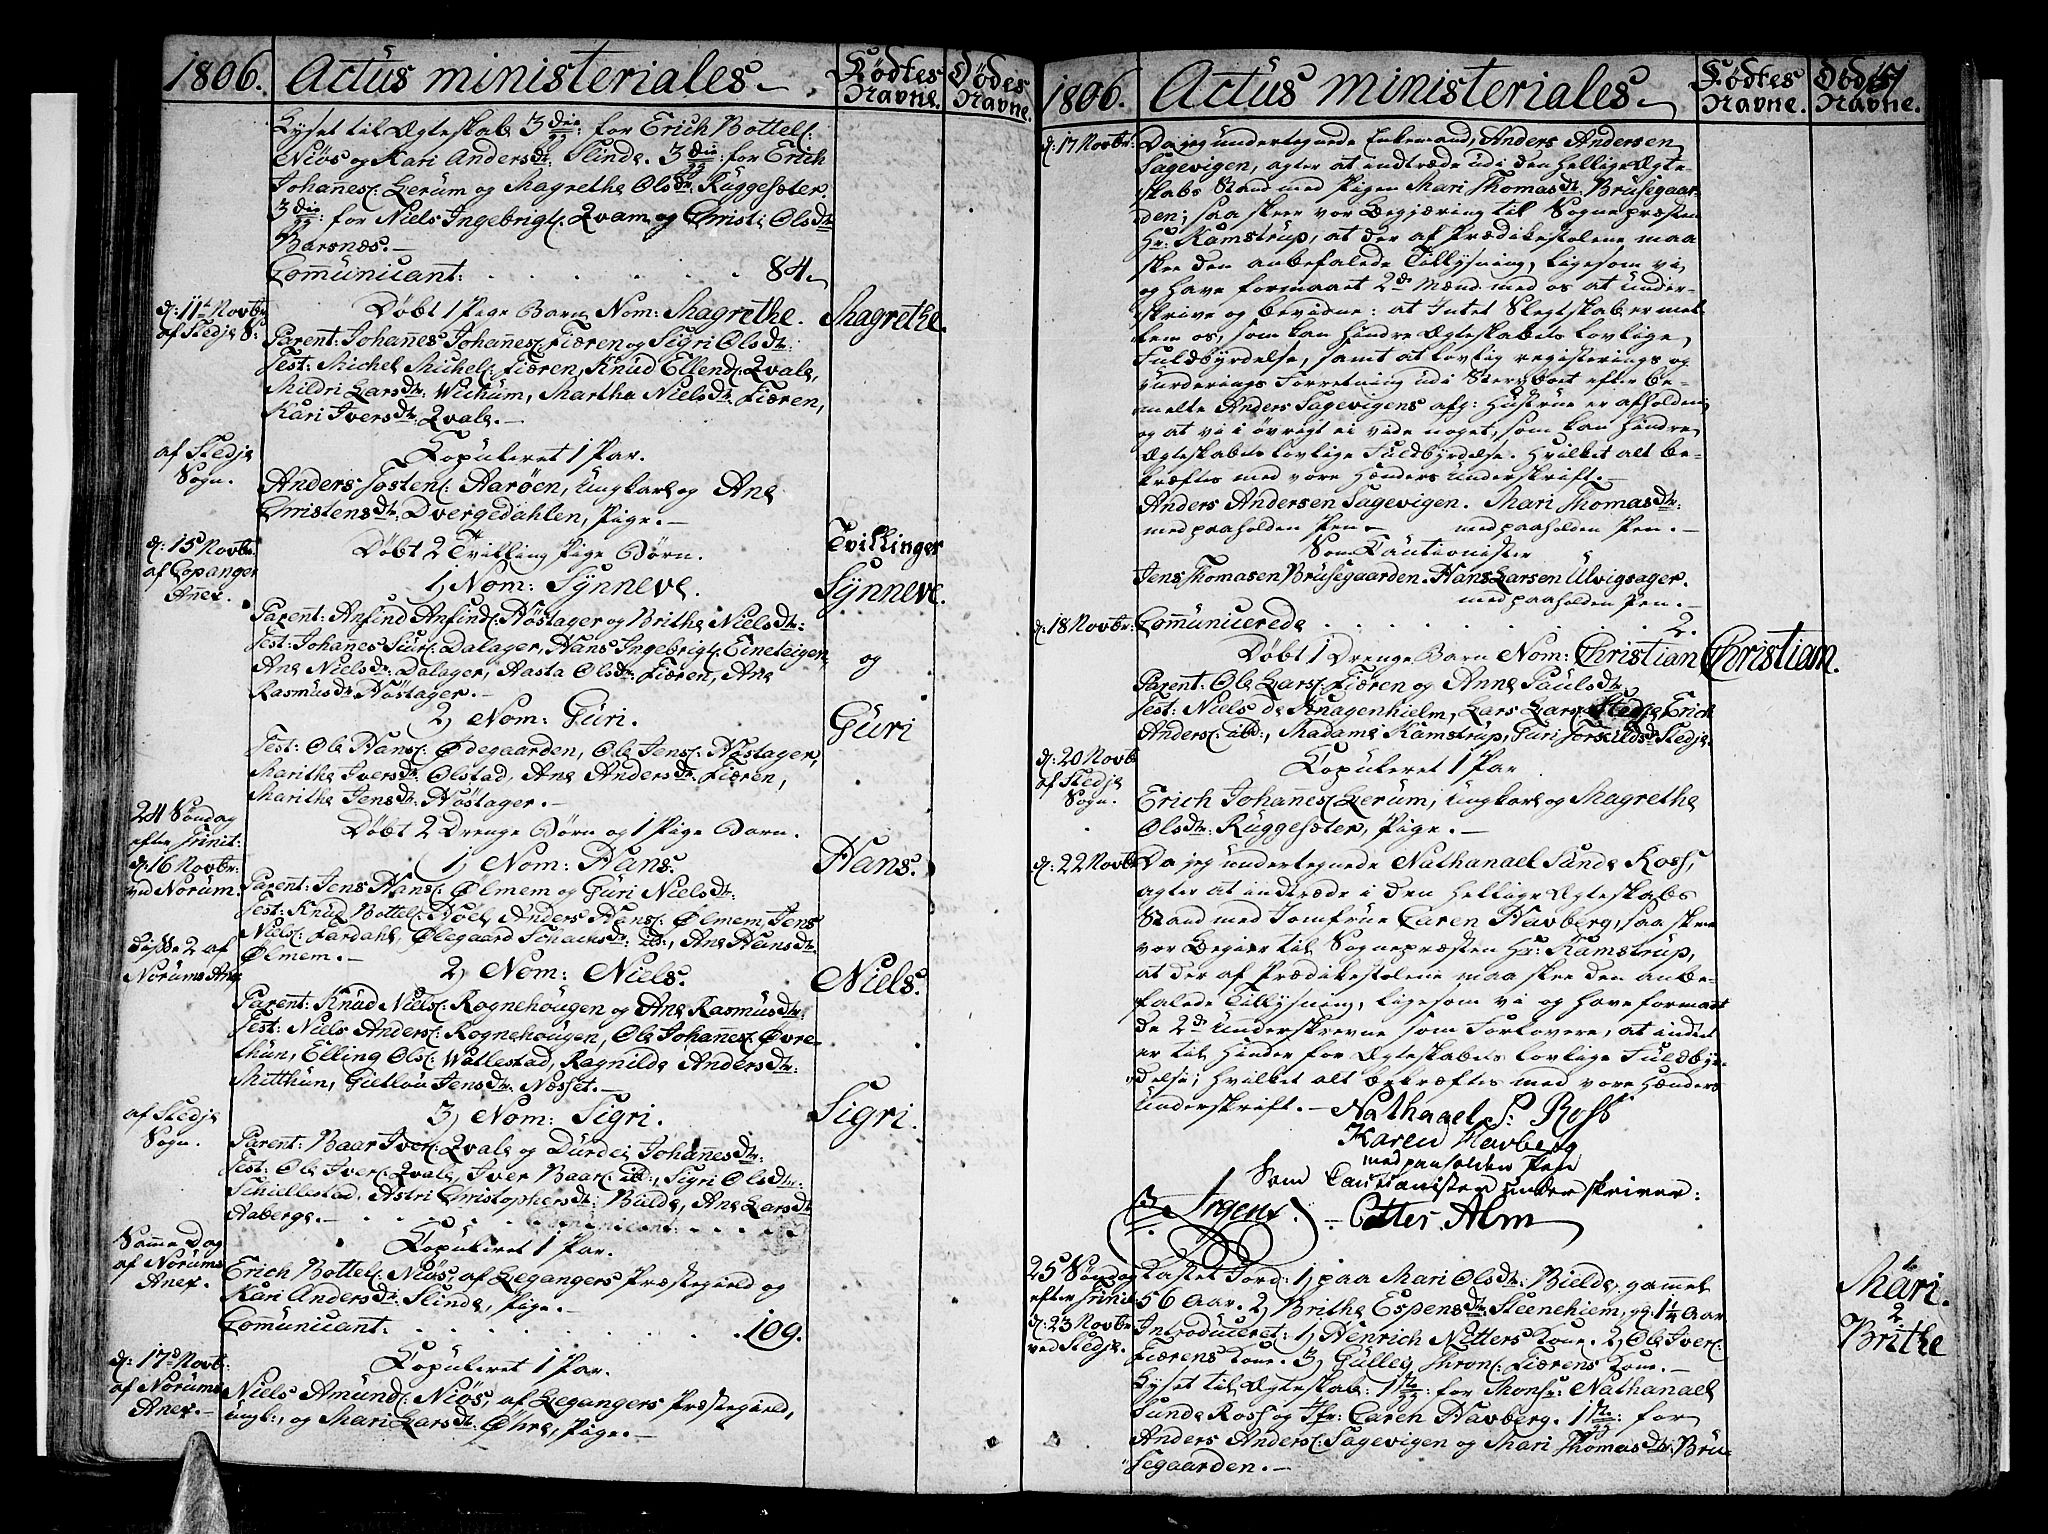 1806.
Actus ministeriales
Fødtes Navne.
Dødes Navne.
Lyset til Ægteskab 3die gg: for Erich Bottels:
Niøs og Kari Andersdtr: Slinde. 3die gg: for Erich
Johanes: Lerum og Magrethe Olsdtr: Rüggesæter
3die gg: for Niels Ingebrigts: Qvam og Christi Olsdtr
Barsnæs.
Comunicant: 84.
d: 11te Novbr
af Stedje S:
Døbt 1 Pige Barn Nom: Magrethe.
Magrethe.
Parent: Johannes Johannes: Fiæren og Sigri Olsdtr:
Test: Michel Michels: Fiæren, Knud Ellends: Qvale,
Mildri Larsdtr: Wichum, Martha Nielsdtr: Fiæren,
Kari Iversdtr: Qvale.
af Stedje
Sogn.
Kopuleret 1 Par.
Anders Jostens: Aarøen, Ungkarl og Ane
Christensdtr: Dvergedahlen, Pige.
d: 15 Novbr.
af Copanger
Anex.
Døbt 2 Tvilling Pige Børn.
Tvillinger
1, Nom: Synneve.
Synneve.
Parent: Anfind Anfinds: Høstager og Brithe Nielsdtr:
Test: Johanes Siurs: Dalager, Hans Ingebrigts: Eineteigen,
og
Ane Nielsdtr: Dalager, Aasta Olsdtr: Fiæren, Ane
Rasmusdtr Høstager.
2, Nom: Guri.
Guri
Test: Ole Hans: Ødegaarden, Ole Jens: Høstager,
Marithe Iversdtr: Olstad, Ane Andersdtr: Fiæren,
Marithe Jensdtr: Høstager.
24 Søndag
efter Trinit:
d: 16 Novbr:
ved Norum.
Døbt 2 Drenge Børn og 1 Pige Barn.
1, Nom: Hans.
Hans.
Parent: Jens Hans: Ølmem og Guri Nielsdtr:
Test: Knud Bottels: Høel, Anders Hans: Ølmem, Jens
Niels: Fardahl, Ølegaard Schacksdtr: ibd:, Ane Hansdtr:
Ølmem.
disse 2 af
Norums Anex
2, Nom: Niels.
Niels.
Parent: Knud Niels: Rognehougen og Ane Rasmusdtr:
Test: Niels Anders: Rognehougen, Ole Johannes: Øvre-
thun, Elling Ols: Wattestad, Ragnilde Andersdtr:
Mitthun, Gietlou Jensdtr: Næsset.
af Stedje
Sogn.
3, Nom: Sigri.
Sigri.
Parent: Baar Ivers: Qvale og Durdei Johannesdtr:
Test: Ole Ivers: Qvale, Iver Baars: ibd:, Sigri Olsdtr:
Schiellestad, Astri Christophersdtr: Bielde, Ane Larsdtr
Aaberge.
Samme Dag
af Norums
Anex.
Kopuleret 1 Par.
Erich Bottels: Niøs, af Legangers Præstegield og
Kari Andersdtr: Slinde, Pige.
Comunicant: 109.
d: 17de Novbr:
af Norums
Anex.
Kopuleret 1 Par.
Niels Amunds: Niøs, af Legangers Præstegield,
ungk:, og Mari Larsdtr: Øhre, Pige.
1806.
Actus ministeriales
Fødtes Navne.
Dødes Navne.
151
d: 17 Novbr:
Da jeg undertegnede Enkemand, Anders Andersen
Sagevigen, agter at indtræde udi den Hellige Ægte-
skabs Stand med Pigen Mari Thomasdtr: Brusegaar-
den; saa skeer vor Begjæring til Sognepræsten
Hr: Kamstrup, at der af Prædikestolene maa
skee den anbefalede Tillysning, ligesom vi
og have formaaet 2de Mænd med os at under-
skrive og bevidne: at Intet Slegtskab er mel-
lem os, som kan hindre Ægteskabets lovlige
Fuldbyrdelse, samt at lovlig registerings og
vurderings Forretning udi Sterboet efter be-
melte Anders Sagevigens afg: Hustrue er afholden,
og at vi i øvrigt ei vide noget, som kan hindre
Ægteskabets lovlige Fuldbyrdelse. Hvilket alt be-
kræftes med vore Hænders Underskrift.
Anders Andersen Sagevigen. Mari Thomasdtr:
med paaholden Pen - med paaholden Pen.
Som Cautionister
Jens Thomasen Brusegaarden. Hans Larsen Ulvigsager.
med paaholden Pen.
d: 18 Novbr:
Communicerede 2.
Døbt 1 Drenge Barn Nom: Christian
Christian.
Parent: Ole Lars: Fiæren og Anne Paulsdtr:
Test: Niels de Knagenhielm, Lars Lars: Stedje, Erich
Anders: ibd:, Madame Kamstrup, Guri Torkildsdtr Stedje.
d: 20 Novbr
af Stedje
Sogn.
Kopuleret 1 Par
Erich Johannes: Lerum, Ungkarl og Magrethe
Olsdtr: Rüggesæter, Pige.
d: 22 Novbr
Da jeg undertegnede Nathanael Sunde Ross,
agter at indtræde i den Hellige Ægteskabs
Stand med Jomfrue Caren Havberg, saa skeer
vor Begier til Sognepræsten Hr: Kamstrup,
at der af Prædikestolene maa skee den anbe-
falede Tillysning, ligesom vi og have formaaet
de 2de Underskrevne som Forlovere, at intet
er til Hinder for Ægteskabets lovlige Fuldbyr-
delse; hvilket alt bekræftes med vore Hænders
Underskrift.
Nathanael S: Ross
Karen Havberg
med paaholden Pen
Som Cautionister underskriver:
Irgens. Ottes Alm
25 Søndag
efter Trinit
d: 23 Novbr
ved Stedje.
Kastet Jord: 1, paa Mari Olsdtr: Bielde, gammel
56 Aar. 2, Brithe Espensdtr: Steenehiem, gl: 1¼ Aar
1
Mari.
2
Brithe
Introduceret: 1, Henrich Nitters Kone. 2, Ole Ivers:
Fiærens Kone. 3, Gulley Throns: Fiærens Kone.
Lyset til Ægteskab: 1te gg: for Monsr: Nathanael
Sunde Ross og Jfr: Caren Havberg. 1te gg: for
Anders Anders: Sagevigen og Mari Thomasdtr: Bru-
segaarden.